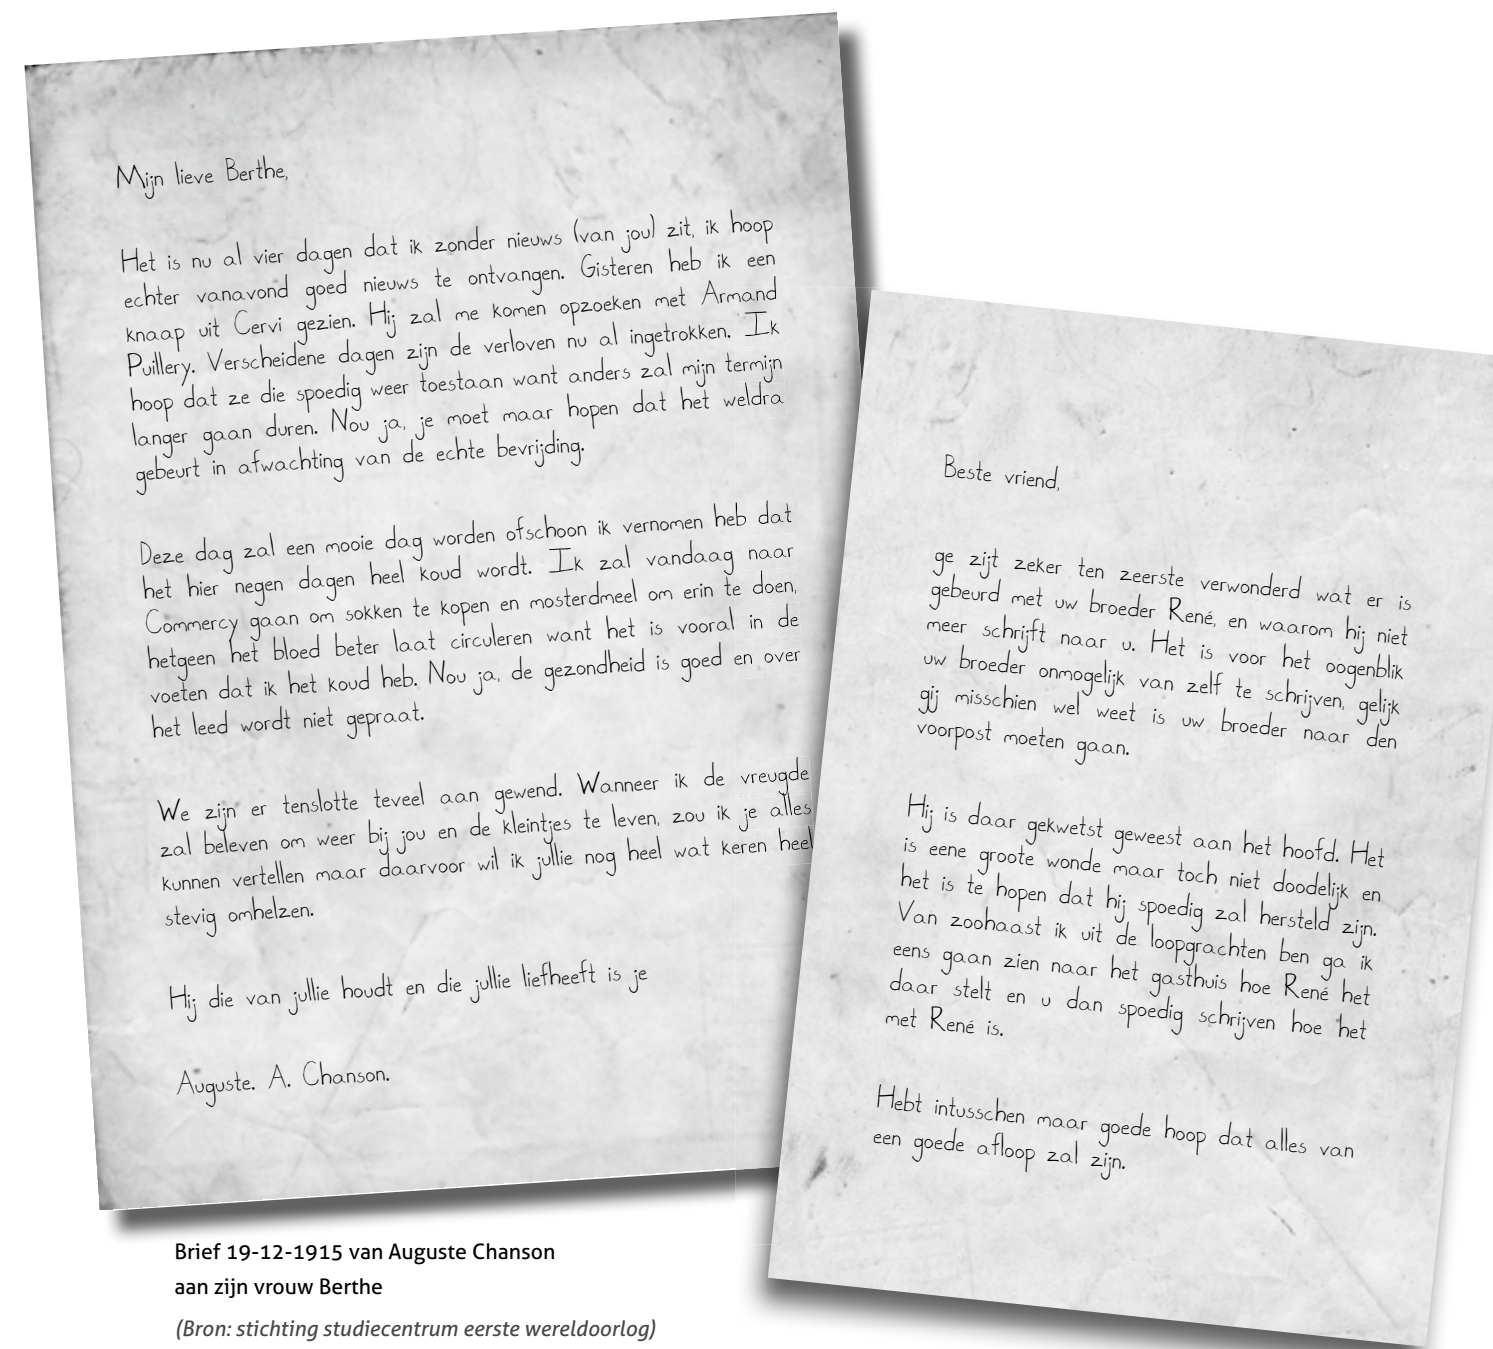 Mijn lieve Berthe,
Het is nu al vier dagen dat ik zonder nieuws (van jou) zit, ik hoop
echter vanavond goed nieuws te ontvangen. Gisteren heb ik een
knaap uit Cervi gezien. Hij zal me komen opzoeken met Armand
Puillery. Verscheidene dagen zijn de verloven nu al ingetrokken. Ik
hoop dat ze die spoedig weer toestaan want anders zal mijn termijn
langer gaan duren. Nou ja, je moet maar hopen dat het weldra
gebeurt in afwachting van de echte bevrijding.
Deze dag zal een mooie dag worden ofschoon ik vernomen heb dat
het hier negen dagen heel koud wordt. Ik zal vandaag naar
Commercy gaan om sokken te kopen en mosterdmeel om erin te doen,
hetgeen het bloed beter laat circuleren want het is vooral in de
voeten dat ik het koud heb. Nou ja, de gezondheid is goed en over
het leed wordt niet gepraat.
We zijn er tenslotte teveel aan gewend. Wanneer ik de vreugde
zal beleven om weer bij jou en de kleintjes te leven, zou ik je alles
kunnen vertellen maar daarvoor wil ik jullie nog heel wat keren heel
stevig omhelzen.
Hij die van jullie houdt en die jullie liefheeft is je
Auguste. A. Chanson.
Brief 19-12-1915 van Auguste Chanson
aan zijn vrouw Berthe
(Bron: stichting studiecentrum eerste wereldoorlog)
Beste vriend,
ge zijt zeker ten zeerste verwonderd wat er is
gebeurd met uw broeder René, en waarom hij niet
meer schrijft naar u. Het is voor het oogenblik
uw broeder onmogelijk van zelf te schrijven, gelijk
gij misschien wel weet is uw broeder naar den
voorpost moeten gaan.
Hij is daar gekwetst geweest aan het hoofd. Het
is eene groote wonde maar toch niet doodelijk en
het is te hopen dat hij spoedig zal hersteld zijn.
Van zoohaast ik uit de loopgrachten ben ga ik
eens gaan zien naar het gasthuis hoe René het
daar stelt en u dan spoedig schrijven hoe het
met René is.
Hebt intusschen maar goede hoop dat alles van
een goede afloop zal zijn.